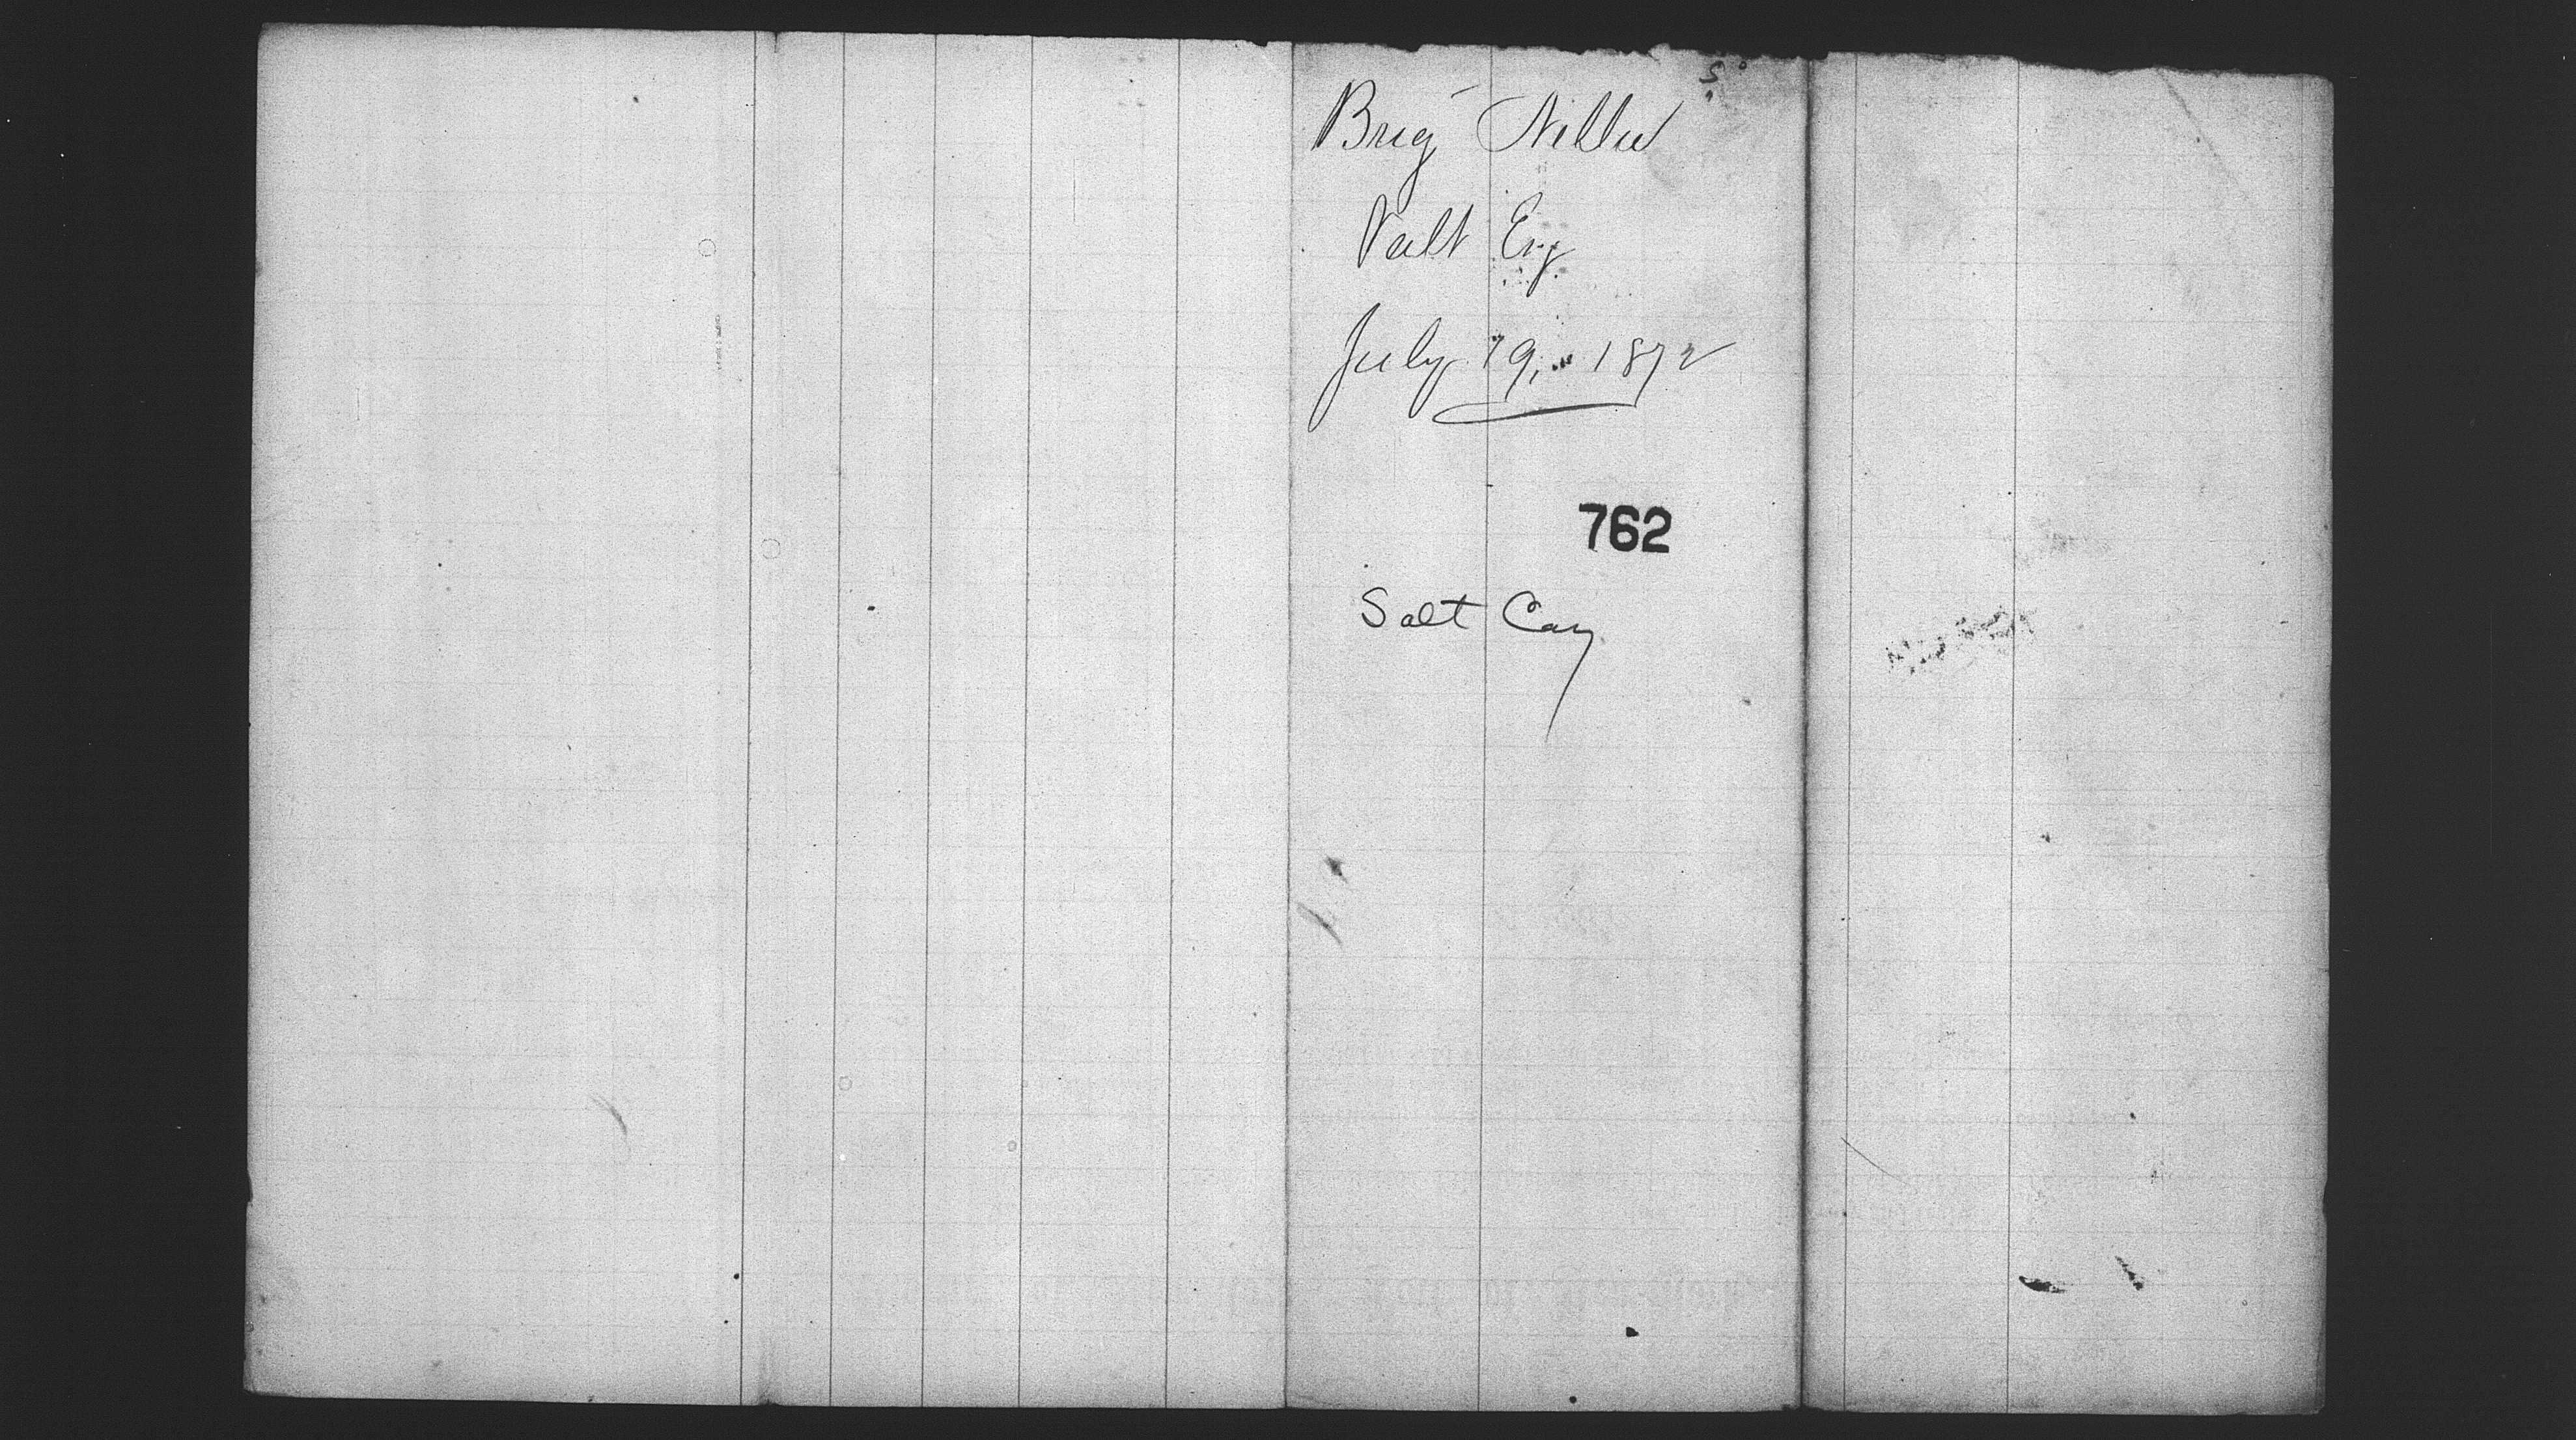 Brig Nellie
Salt Cay
July 19, 1872
762
Salt Cay